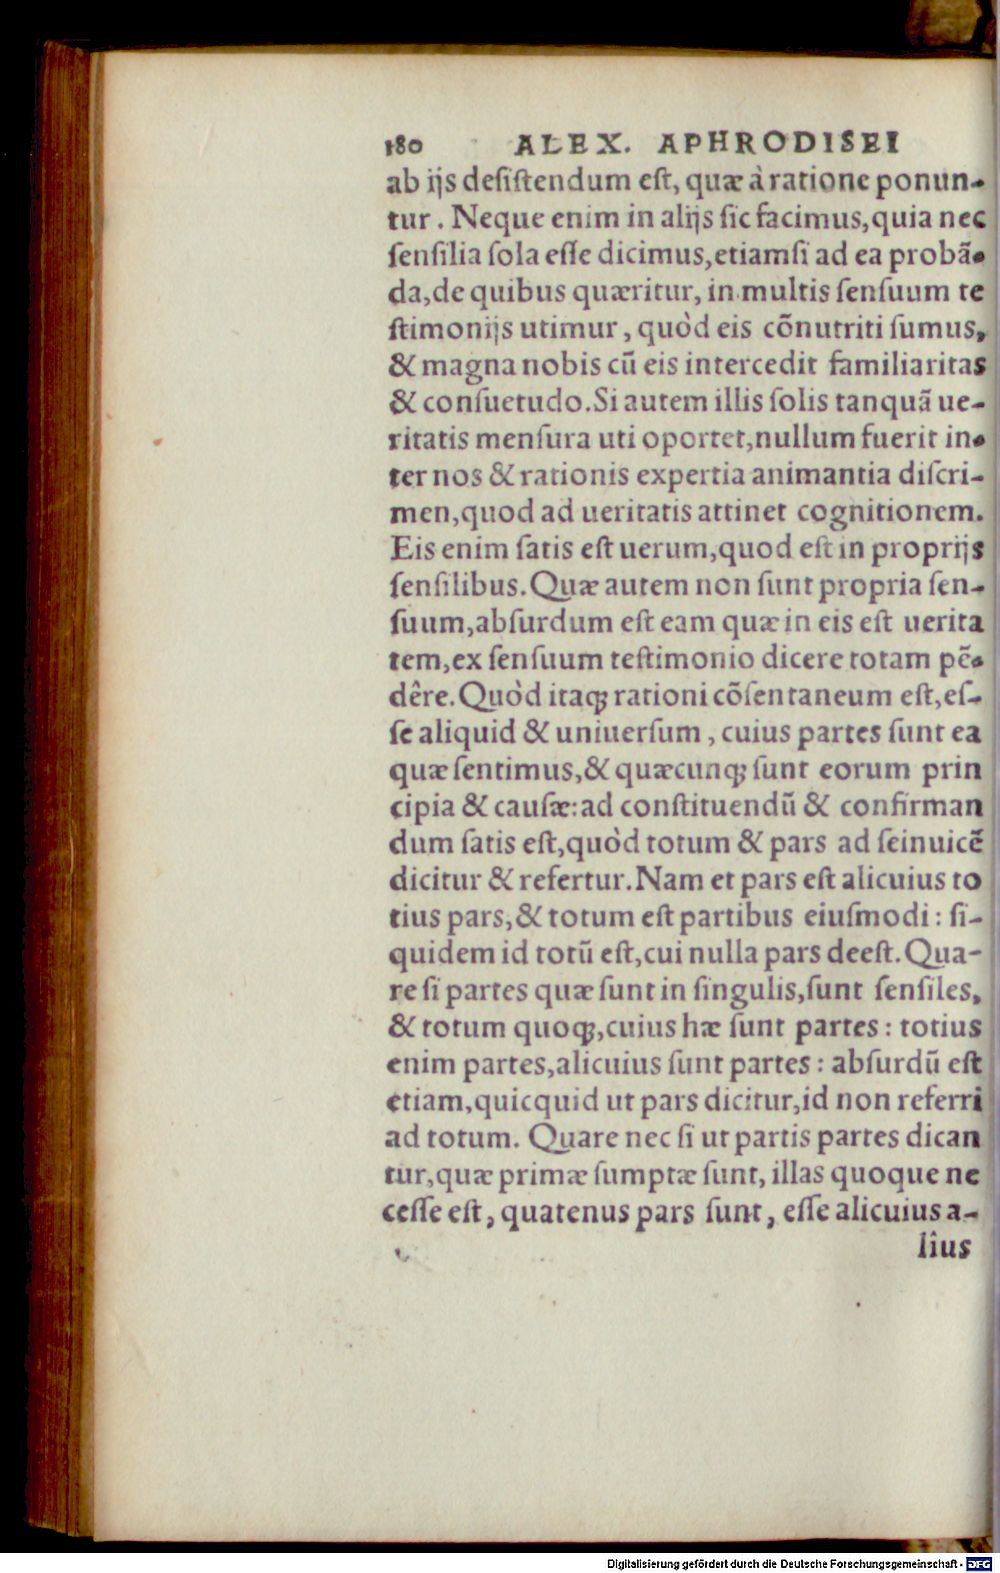 180 ALEX. APHRODISEI
ab ijs desiſtendum eſt, quæ à ratione ponun-
tur. Neque enim in alijs sic facimus, quia nec
ſenſilia ſola eſſe dicimus, etiamſi ad ea probã-
da, de quibus quæritur, in multis ſenſuum te
ſtimonijs utimur, quòd eis cõnutriti ſumus,
& magna nobis cũ eis intercedit familiaritas
& conſuetudo. Si autem illis ſolis tanquã ue-
ritatis menſura uti oportet, nullum fuerit in-
ter nos & rationis expertia animantia diſcri-
men, quod ad ueritatis attinet cognitionem.
Eis enim ſatis eſt uerum, quod eſt in proprijs
ſenſilibus. Quæ autem non ſunt propria ſen-
ſuum, abſurdum eſt eam quæ in eis eſt uerita
tem, ex ſenſuum teſtimonio dicere totam pẽ-
dêre. Quòd itaq; rationi cõſentaneum eſt, eſ-
ſe aliquid & uniuerſum, cuius partes ſunt ea
quæ ſentimus, & quæcunq; ſunt eorum prin
cipia & cauſæ: ad conſtituendũ & confirman
dum ſatis eſt, quòd totum & pars ad ſeinuicẽ
dicitur & refertur. Nam et pars eſt alicuius to
tius pars, & totum eſt partibus eiuſmodi: ſi-
quidem id totũ eſt, cui nulla pars deeſt. Qua-
re ſi partes quæ ſunt in ſingulis, ſunt ſenſiles,
& totum quoq;, cuius hæ ſunt partes: totius
enim partes, alicuius ſunt partes: abſurdũ eſt
etiam, quicquid ut pars dicitur, id non referri
ad totum. Quare nec ſi ut partis partes dican
tur, quæ primæ ſumptæ ſunt, illas quoque ne
ceſſe eſt, quatenus pars ſunt, eſſe alicuius a-
lîus
Digitalisierung gefördert durch die Deutsche Forschungsgemeinschaft - DFG